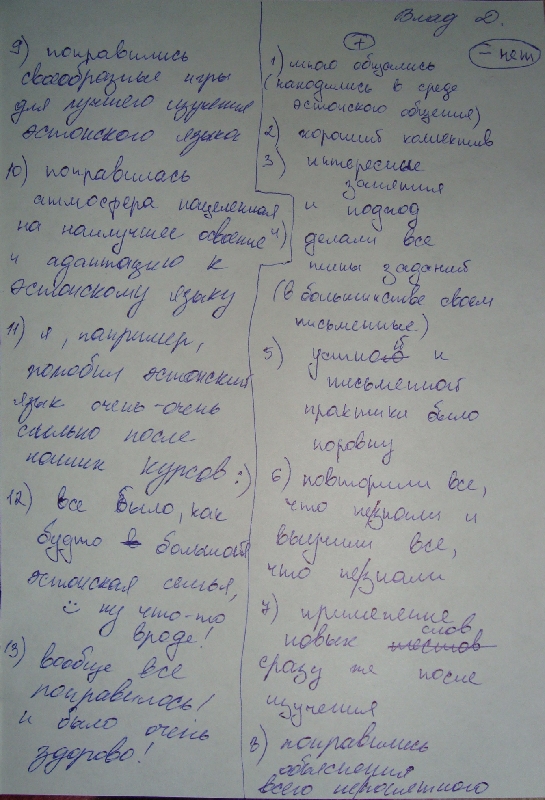 Влад Д.
+
- нет
1) много общались
(находились в среде
эстонского общения)
2) хороший коллектив
3) интересные
занятия
и подход
4) делали все
типы заданий
(в большинстве своем
письменные)
5) устной и
письменной
практики было
поровну
6) повторили все,
что не знали и
выучили все,
что не знали
7) применение
новых слов
сразу же после
изучения
8) понравились
объяснения
всего непонятного
9) понравились
своеобразные игры
для лучшего изучения
эстонского языка
10) понравилась
атмосфера нацеленная
на наилучшее освоение
и адаптацию к
эстонскому языку
11) я, например,
полюбил эстонский
язык очень-очень
сильно после
наших курсов :)
12) все было, как
будто большая
эстонская семья,
ну что-то
вроде!
13) вообще все
понравилось!
и было очень
здорово!